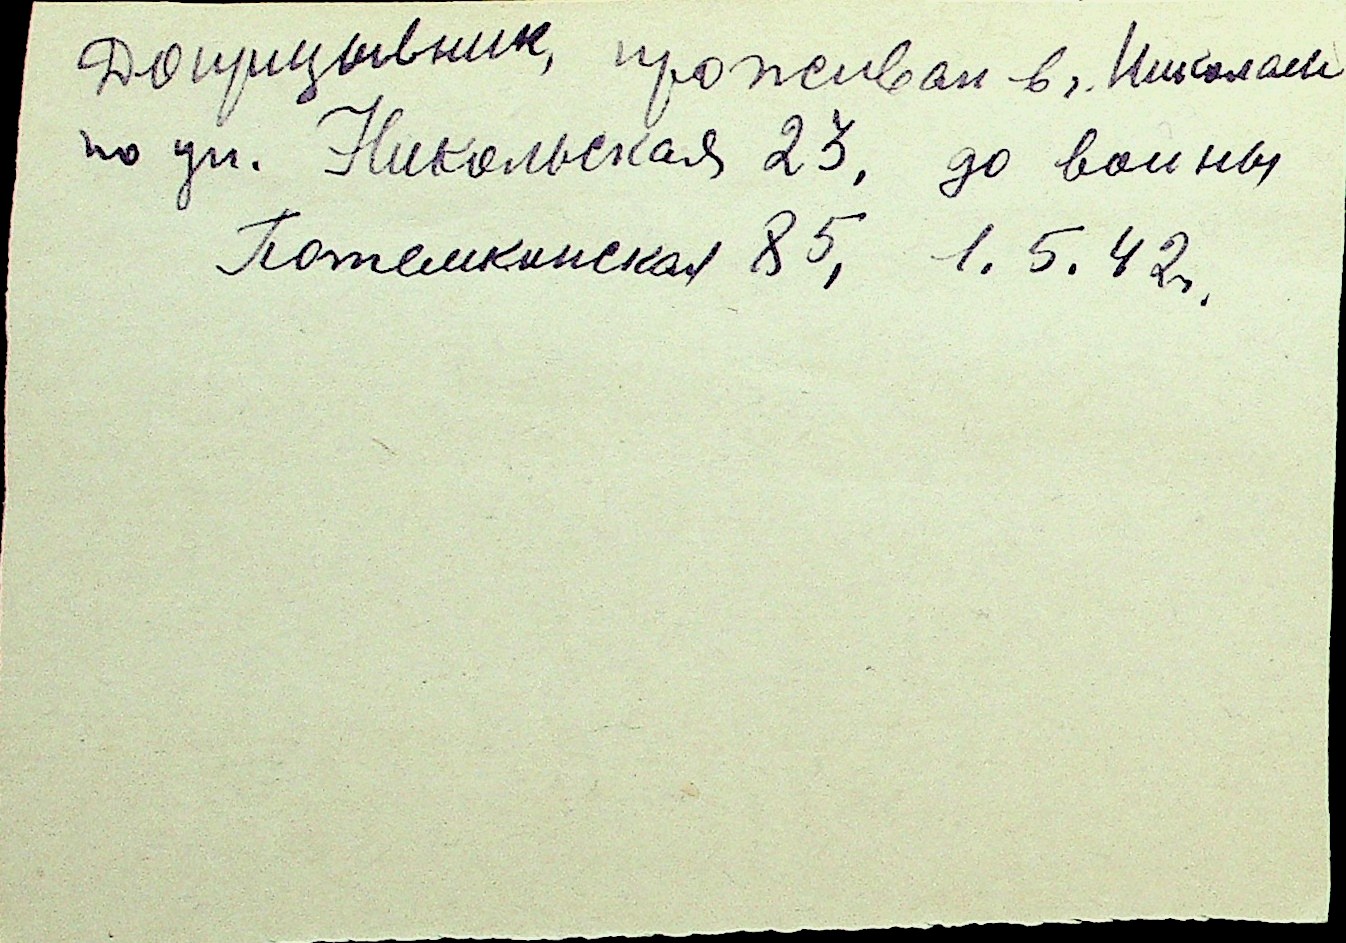 Допризывник, проживал в г. Николаев
по ул. Никольская 23, до войны
Потемкинская 85, 1.5.42г.